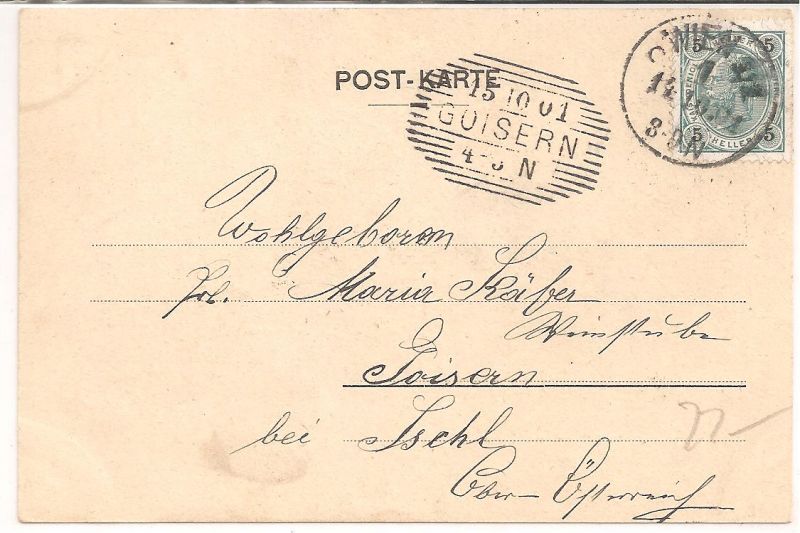 POST-KARTE
15 10 01
GOISERN
4-5 N
WIEN
14
8-9N
5 5
5 HELLER 5
Wohlgeboren
Frl. Maria Käfer
Weinstube
Goisern
bei Ischl
Ober-Österreich